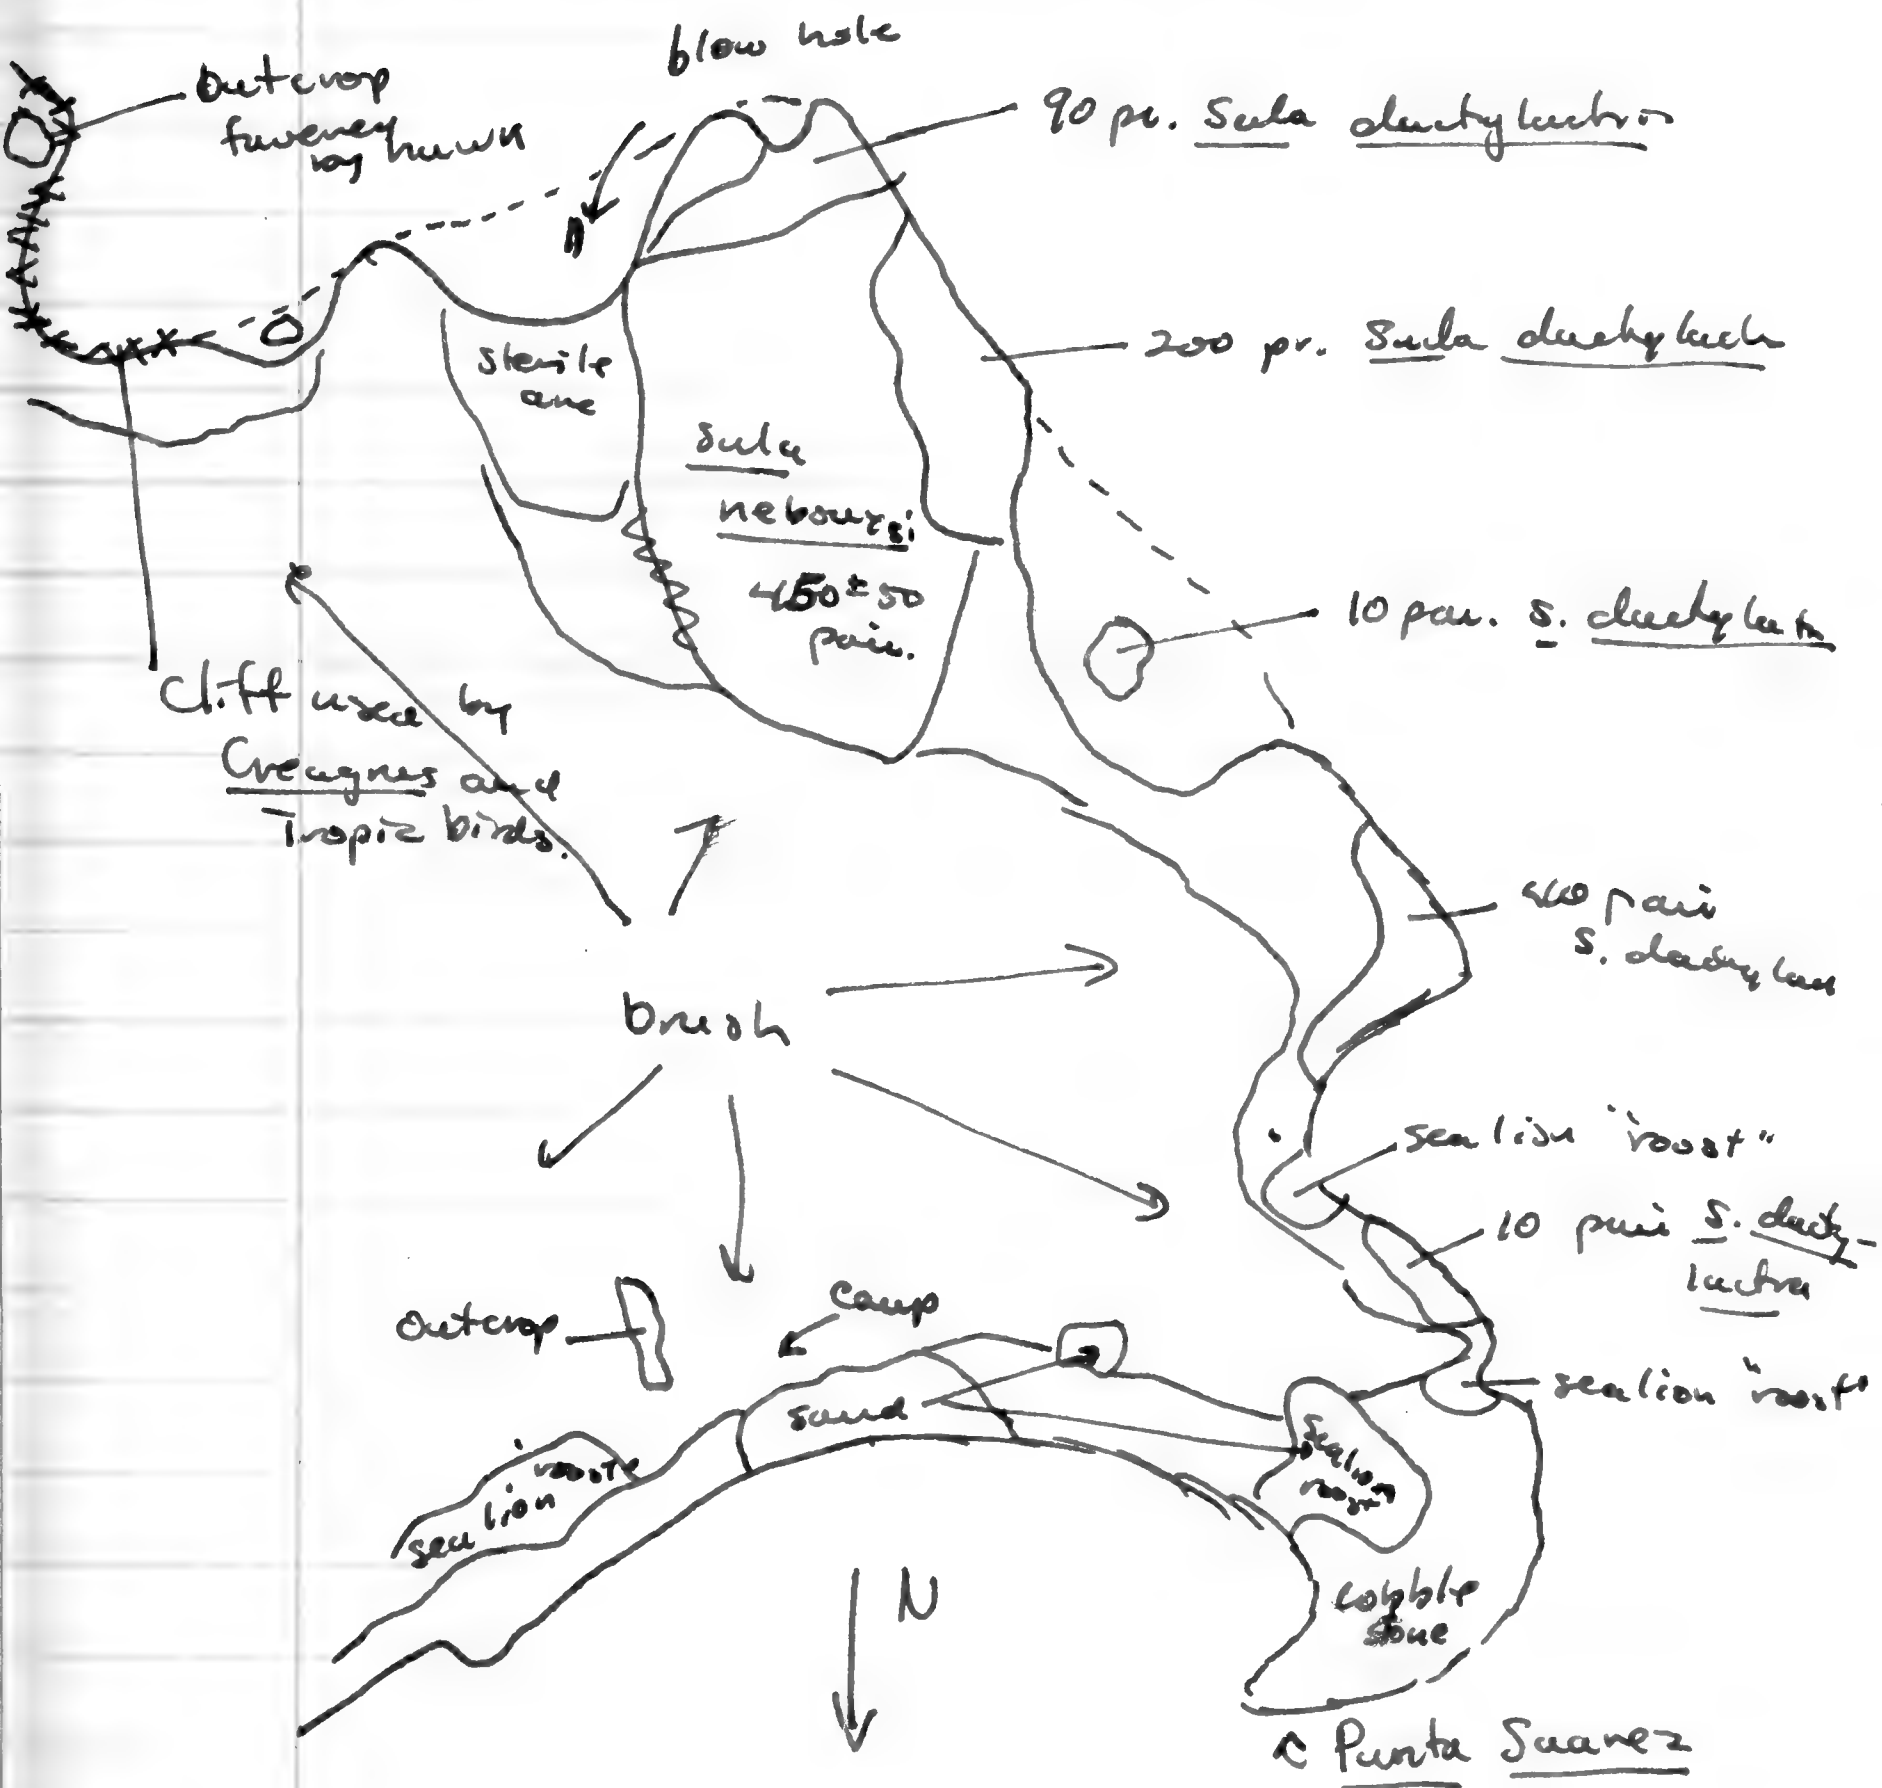 blow hole
Outcrop
by hawk
90 pr. Sula dactylactra
200 pr. Sula dactylact
sterile
Sula
nebouxii
450 ± 50
pair.
10 pair. S. dactylact
Cliff used by
Creagrus and
Tropic birds.
pair
S. dactylact
brush
sea lion "roost"
10 pair S. dacty-
lactra
camp
outcrop
sea lion "roost"
sand
sea lion roosts
sea lion
roost"
cobble
stone
N
Punta Suarez